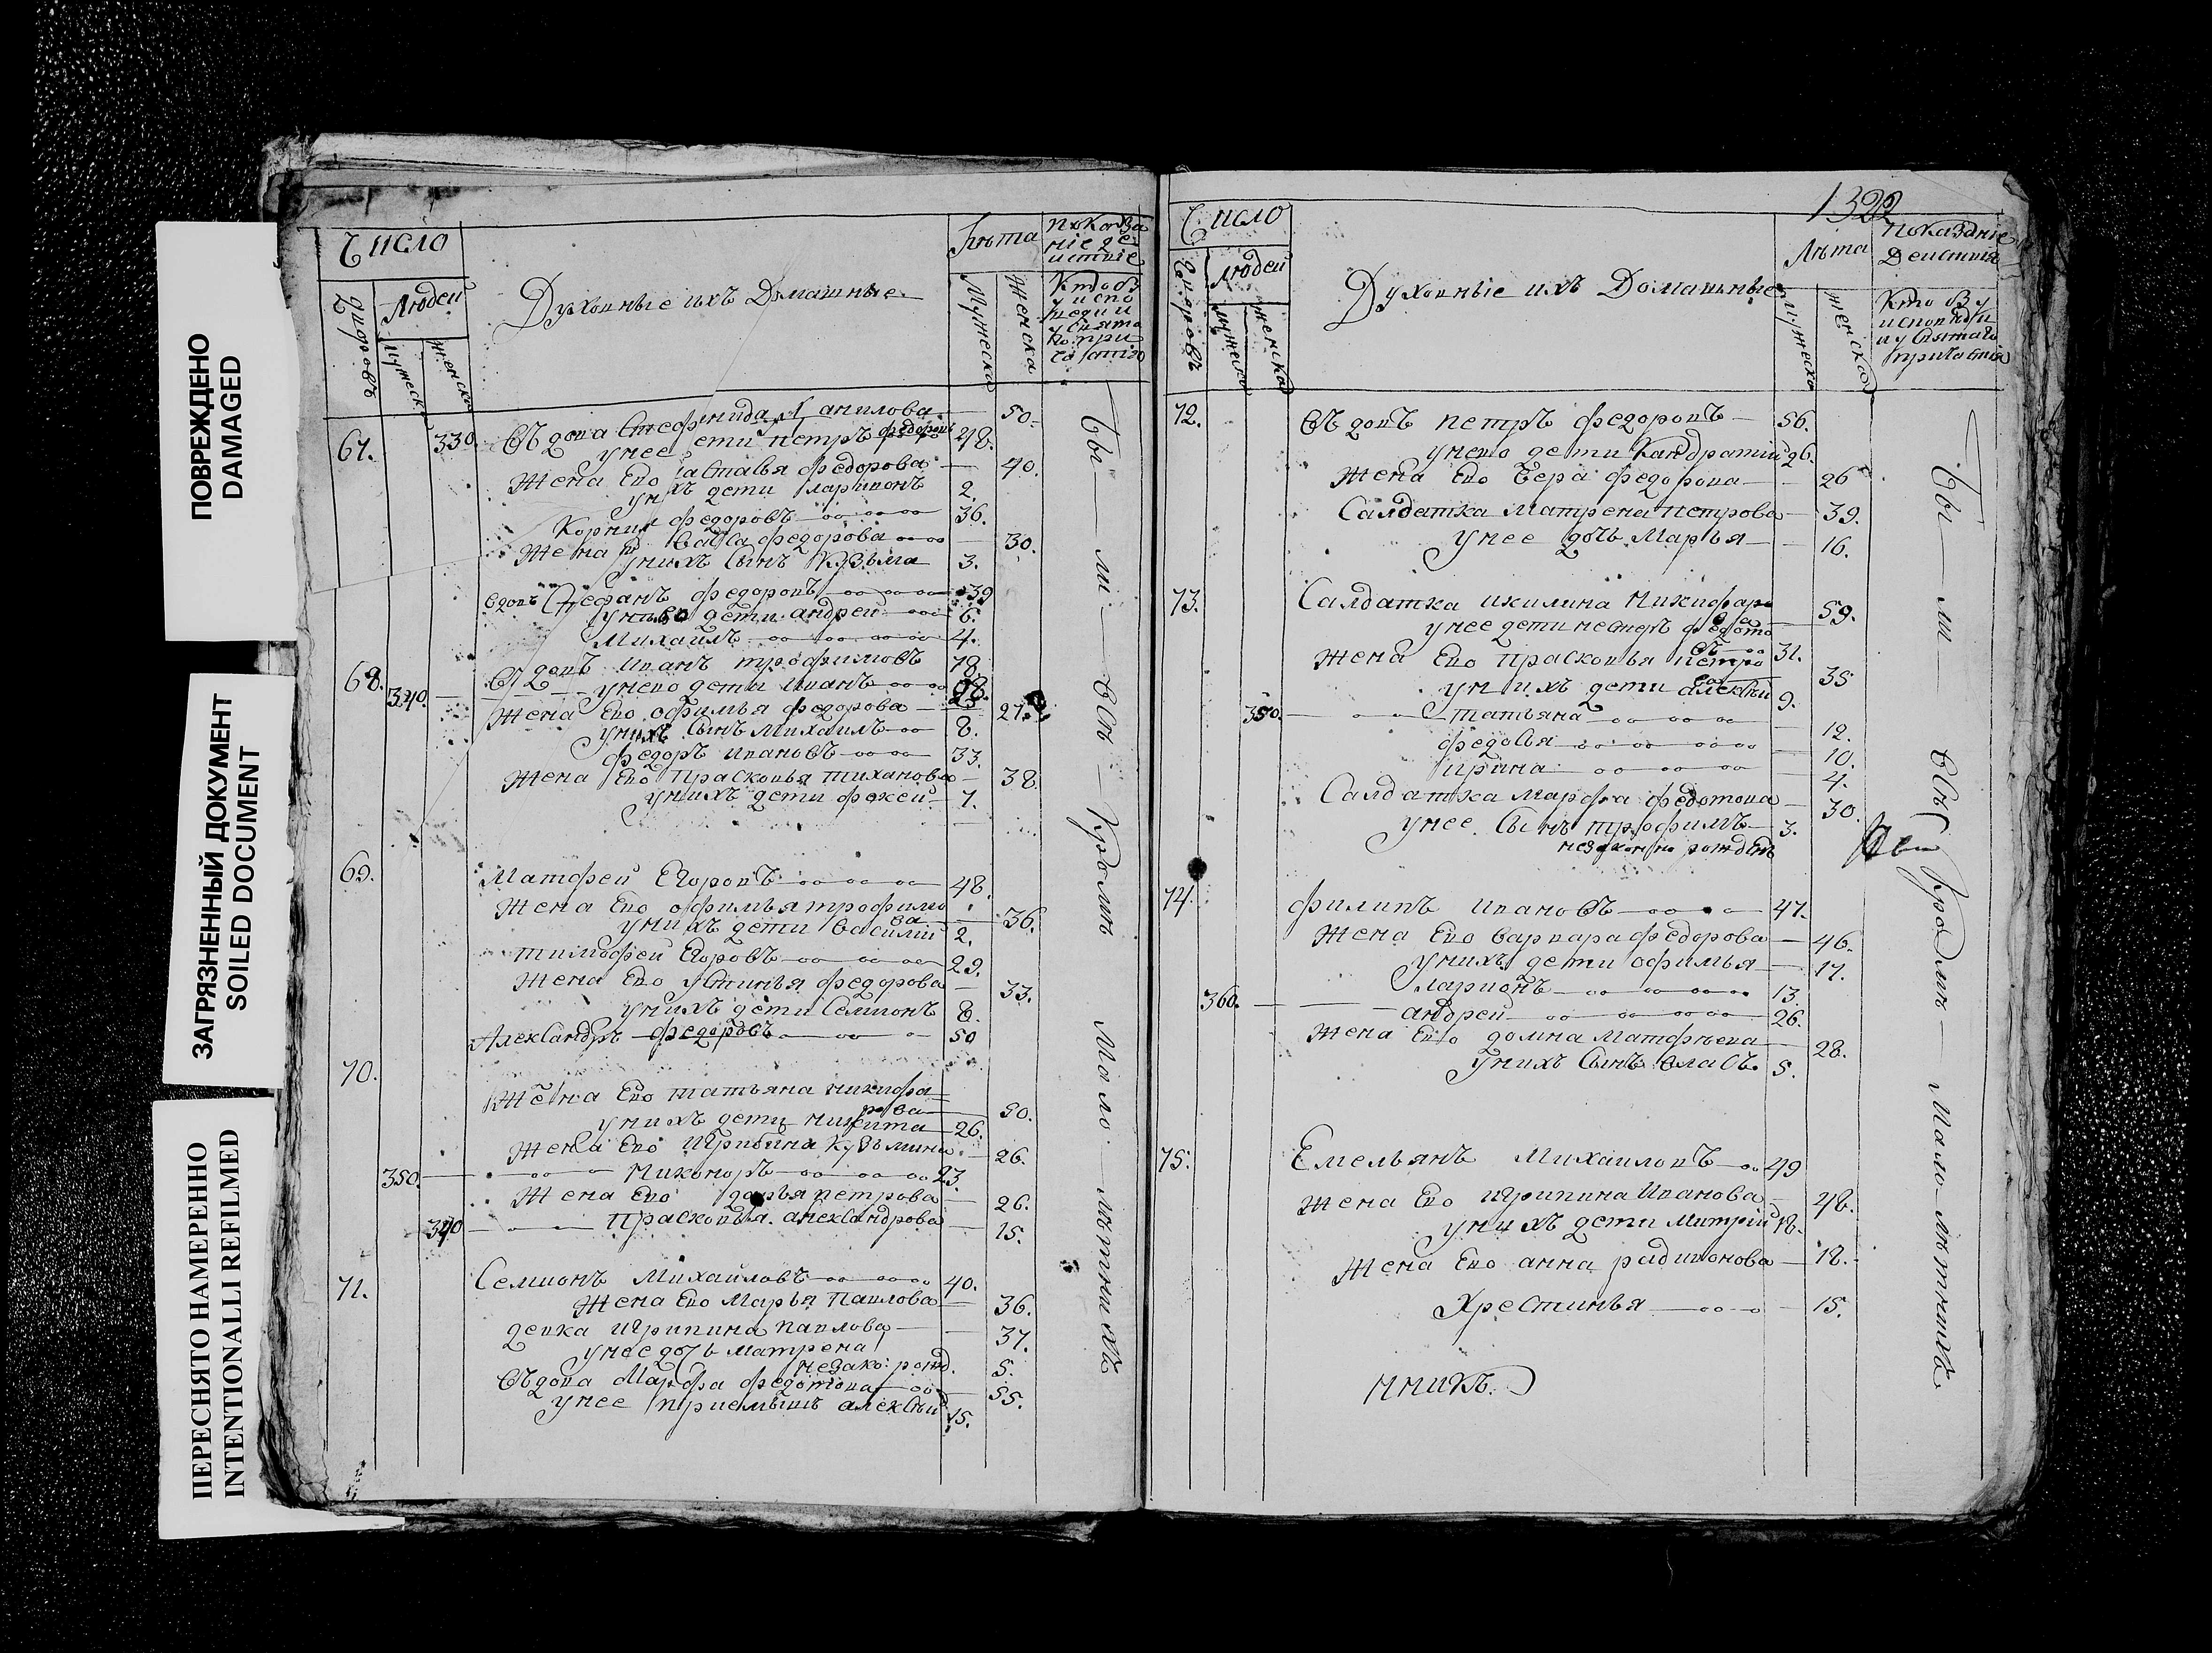 ПОВРЕЖДЕНО
DAMAGED
ЗАГРЯЗНЕННЫЙ ДОКУМЕНТ
SOILED DOCUMENT
ПЕРЕСНЯТО НАМЕРЕННО
INTENTIONALLI REFILMED
Число
Людей
Дворовъ
Мужеск
женска
Духовные ихъ Домашные
Лѣта
Мужеска
Женска
показа
ніе де
иствіе
Кто в
у испо
веди и
у свята
го при
частія
50.
67. 330. Вдова Стефанида Данилова
у нее дети петръ федоровъ 48.
Жена Ево федорова 40.
у нихъ дети ларивонъ 2.
Корнил федоровъ 36.
Жена федорова 30.
у нихъ Сынъ Кузьма 3.
вдовъ Стефанъ федоровъ 39
у нево дети андрей 6.
Михаилъ 4.
68. Вдовъ иванъ трофимовъ 78
340. у нево дети иванъ 28.
Жена Ево офимья федорова 27.
у нихъ Сынъ Михаилъ 8.
федоръ ивановъ 33.
Жена Ево Прасковья тиханова 38.
у нихъ дети фокей 7.
69. Матфей Егоровъ 48
Жена Ево офимья трофимо
ва 36.
у нихъ дети василий 2.
тимофей Егоровъ 29.
Жена Ево устинья федорова 33.
у нихъ дети Семионъ 8.
Александръ федоровъ 50
70.
Жена Ево татьяна никифа
рова 50.
у нихъ дети никита 26.
Жена Ево игрипина Кузьмина 26.
350. Миконоръ 23.
Жена Ево дарья петрова 26.
340 Прасковья александрова 15.
71. Семионъ Михайловъ 40.
Жена Ево Марья Павлова 36.
девка игрипина павлова 37.
у нее дочь матрена
незако: рожд. 5.
Вдова Марфа федотова 55.
у нее приемышъ алексѣй 15.
Бы ли всѣ Кромѣ Мало лѣтныхъ
1322
Число
Людей
Дворовъ
мужеск
женска
Духовные ихъ Домашные
Лѣта
мужеска
женска
показание
Действия
Кто в у
исповѣди
и у святаго
причастия
72. Вдовъ петръ федоровъ 56.
у нево дети Кандратий 26.
Жена Ево Вера федорова 26
Салдатка Матрена петрова 39.
у нее дочь Марья 16.
73. Салдатка икилина Никифар
ова 59.
у нее дети нестеръ федото
въ 31.
Жена Ево прасковья петро
ва 35
у нихъ дети алексѣй 9.
350. татьяна 12.
федосья 10.
ирина 4.
Салдатка Марфа федотова 30.
у нее Сынъ трофимъ 3.
незаконно рожденъ
74. филипъ ивановъ 47.
Жена Ево варвара федорова 46.
у нихъ дети офимья 17.
ларионъ 13.
360. андрей 26.
Жена Ево домна Матфѣева 28.
у нихъ Сынъ власъ 5.
75. Емельянъ Михайловъ 49
Жена Ево игрипина Иванова 48.
у нихъ дети митрий 18.
Жена Ево анна радивонова 18.
Хрестинья 15.
Бы ли всѣ Кромѣ Мало лѣтныхъ